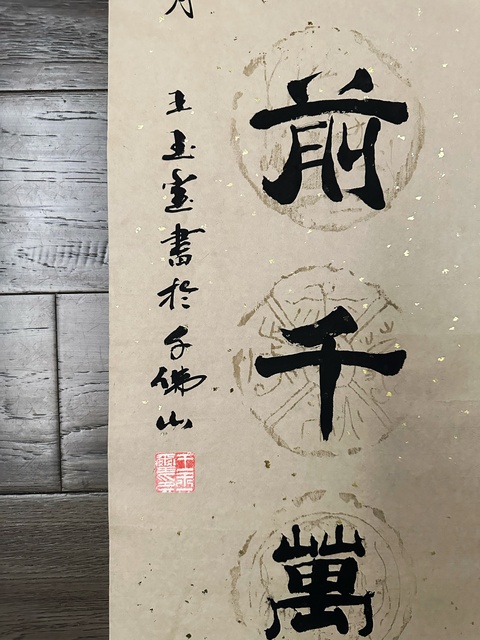 前千萬
月
王玉璽書於千佛山